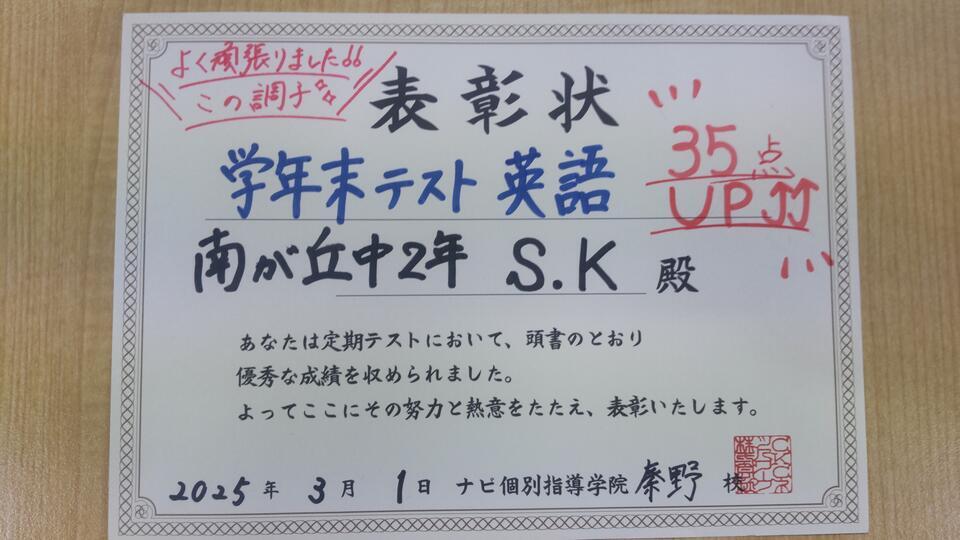 よく頑張りました!!
この調子
表彰状
35点
UP⇈
学年末テスト 英語
南が丘中2年 S.K 殿
あなたは定期テストにおいて、頭書のとおり
優秀な成績を収められました。
よってここにその努力と熱意をたたえ、表彰いたします。
2025年 3月 1日 ナビ個別指導学院 秦野 校